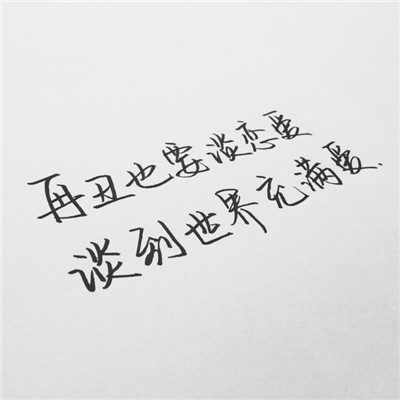 再丑也要谈恋爱
谈到世界充满爱.